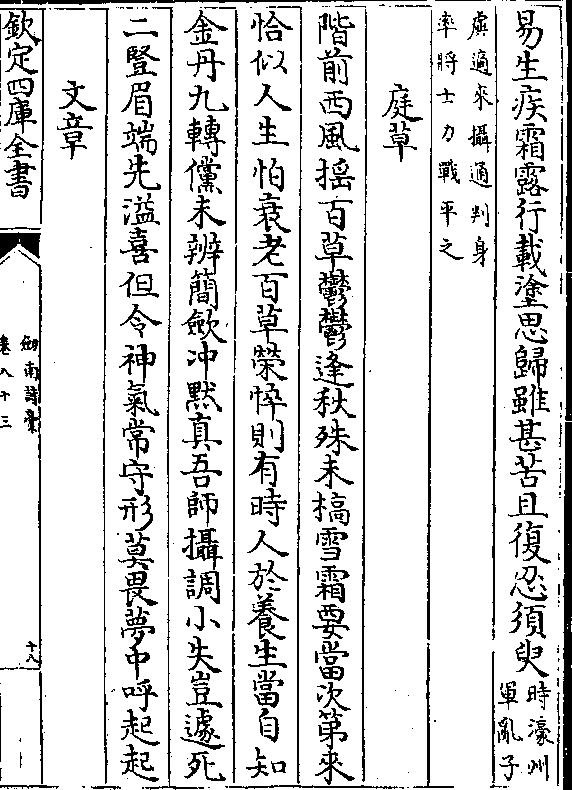 易生疾霜露行載塗思歸雖甚苦且復忍須臾時濠州軍亂子
虡適來攝通判身率將士力戰平之
庭草
階前西風揺百草鬱鬱逢秋殊未槁雪霜要當次第來
恰似人生怕衰老百草榮悴則有時人於養生當自知
金丹九轉儻未辨簡歛冲黙真吾師攝調小失豈遽死
二豎眉端先溢喜但令神氣常守形莫畏夢中呼起起
文章
欽定四庫全書
劒南詩藁
卷八十三
十八